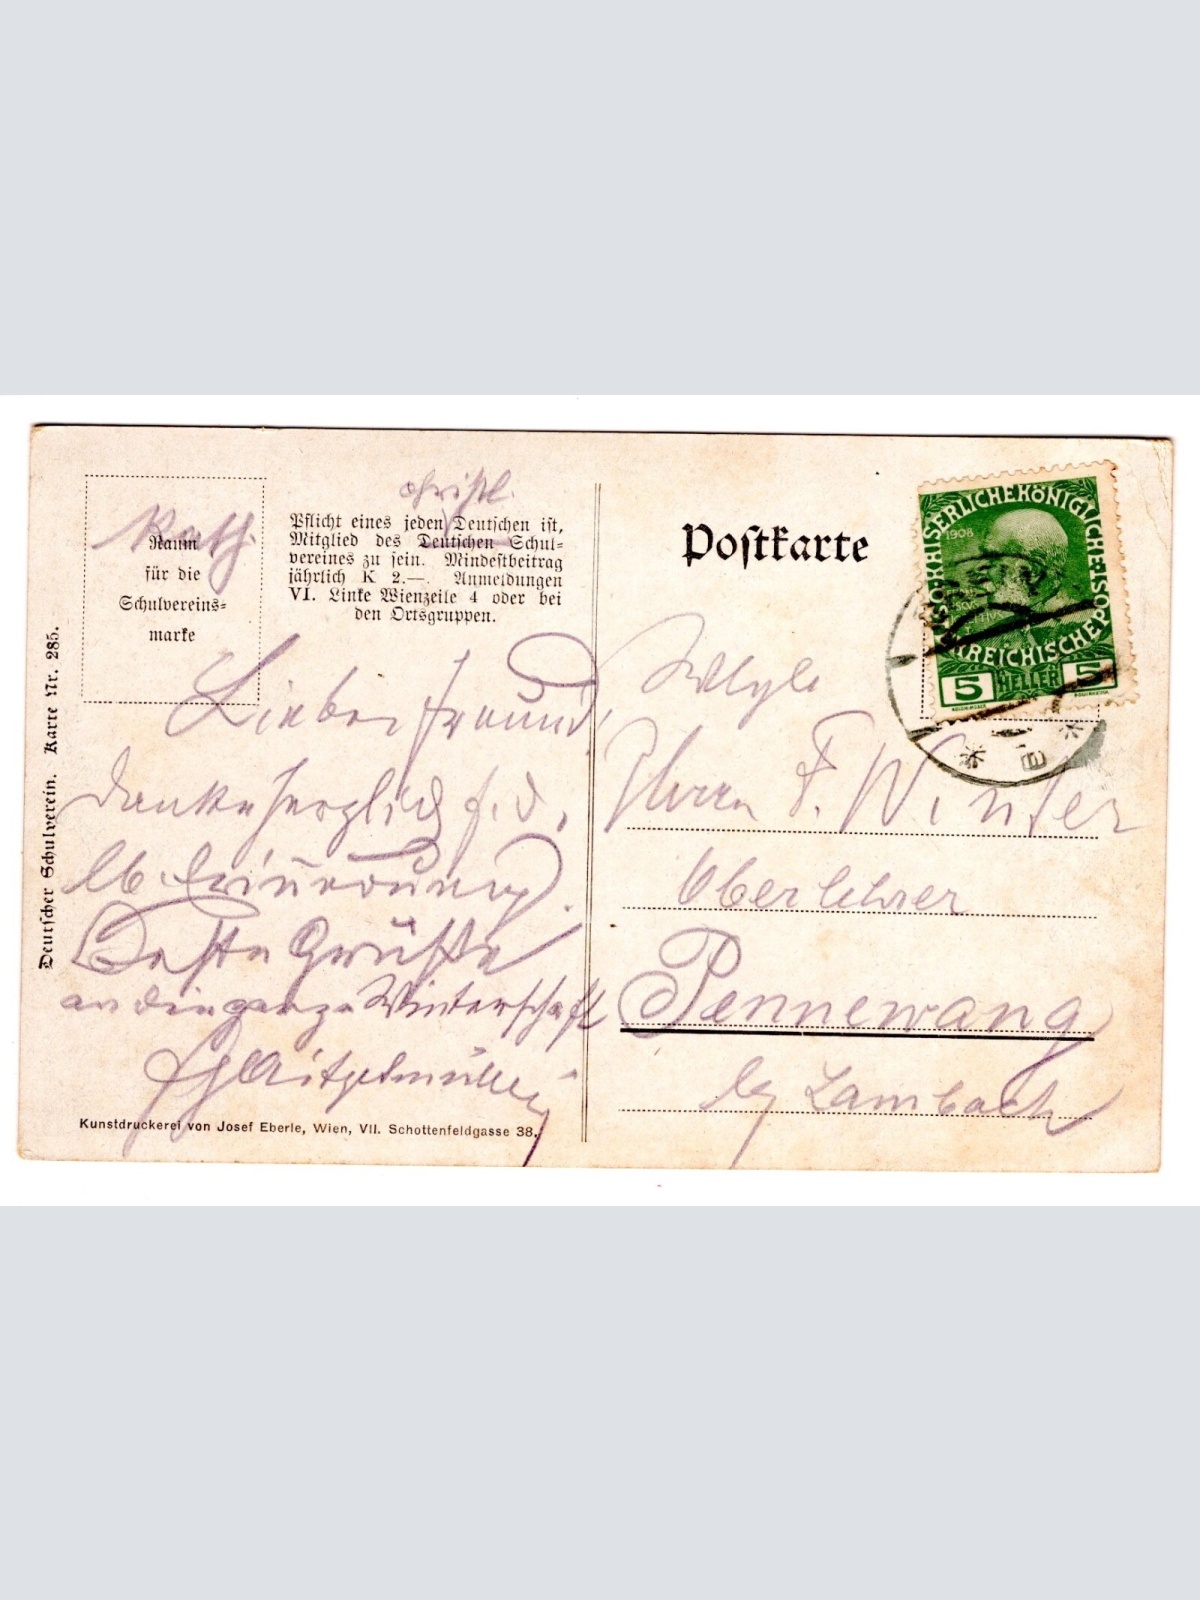 Kath.
Raum
für die
Schulvereins-
marke
christl.
Pflicht eines jeden Deutschen ist,
Mitglied des Deutschen Schul-
vereines zu sein. Mindestbeitrag
jährlich K 2.—. Anmeldungen
VI. Linke Wienzeile 4 oder bei
den Ortsgruppen.
Deutscher Schulverein. Karte Nr. 285.
Lieber Freund,
Danke herzlich f. d.
lb. Erinnerung.
Beste Grüße
an die ganze Winterschaft
Kunstdruckerei von Josef Eberle, Wien, VII. Schottenfeldgasse 38.
Postkarte
KAISERLICHE KÖNIGLICHE
ÖSTERREICHISCHE POST
1908
5 HELLER 5
Wlgb
Herrn F. Winter
Oberlehrer
Pennewang
by Lambach